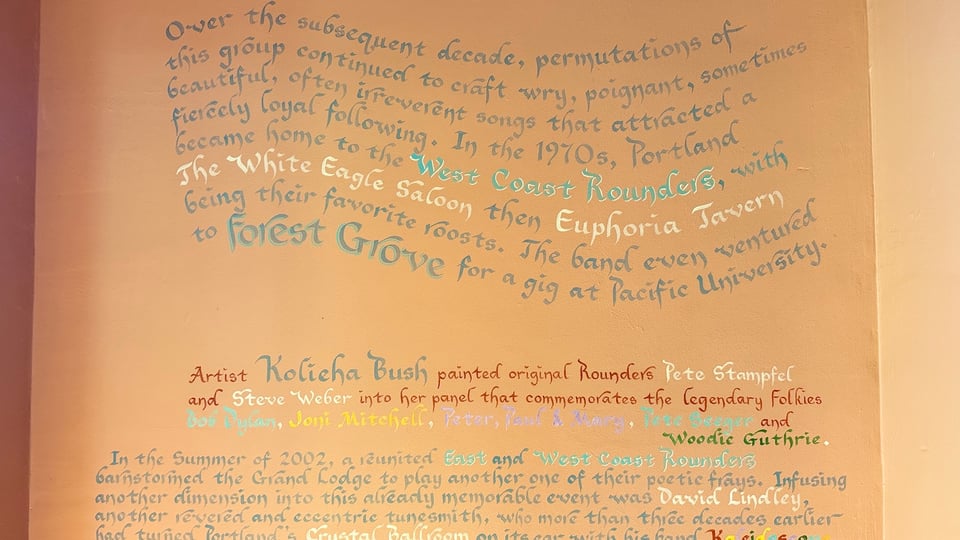 Over the subsequent decade, permutations of
this group continued to craft wry, poignant, sometimes
beautiful, often irreverent songs that attracted a
fiercely loyal following. In the 1970s, Portland
became home to the West Coast Rounders, with
The White Eagle Saloon then Euphoria Tavern
being their favorite roosts. The band even ventured
to Forest Grove for a gig at Pacific University.
Artist Kolieha Bush painted original Rounders Pete Stampfel
and Steve Weber into her panel that commemorates the legendary Folkies
Bob Dylan, Joni Mitchell, Peter, Paul & Mary, Pete Seeger and
Woodie Guthrie.
In the Summer of 2002, a reunited East and West Coast Rounders
barnstormed the Grand Lodge to play another one of their poetic frays. Infusing
another dimension into this already memorable event was David Lindley,
another revered and eccentric tunesmith, who more than three decades earlier
had turned Portland's Crystal Ballroom on its ear with his band Kaleidoscope